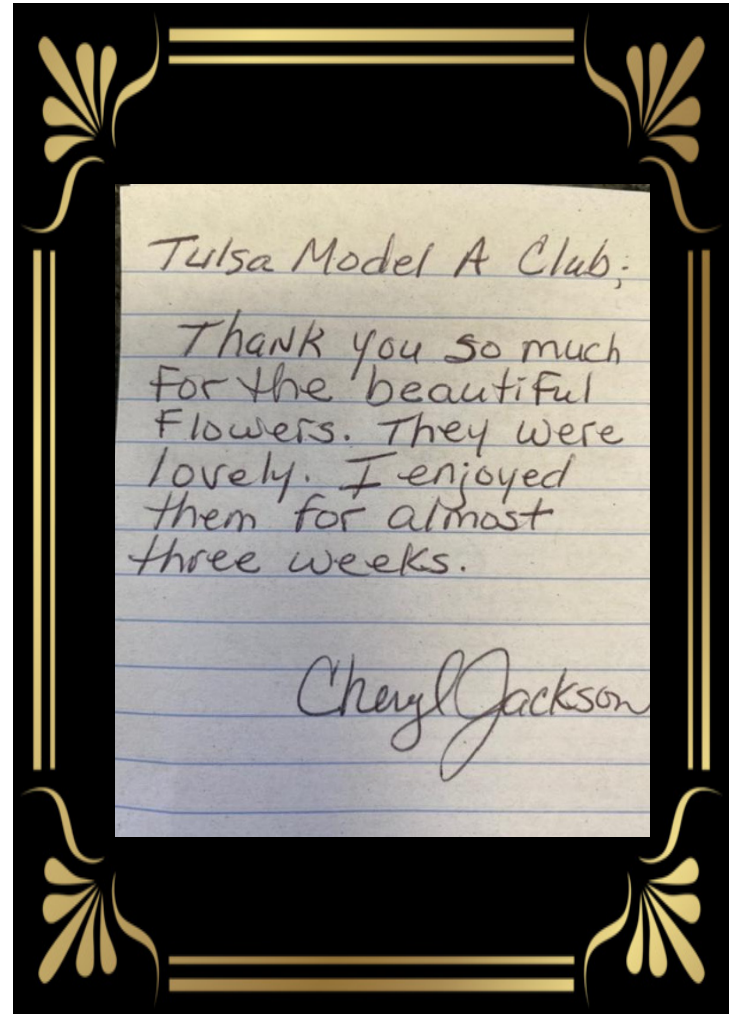 Tulsa Model A Club;
Thank you so much
for the beautiful
Flowers. They were
lovely. I enjoyed
them for almost
three weeks.
Cheryl Jackson